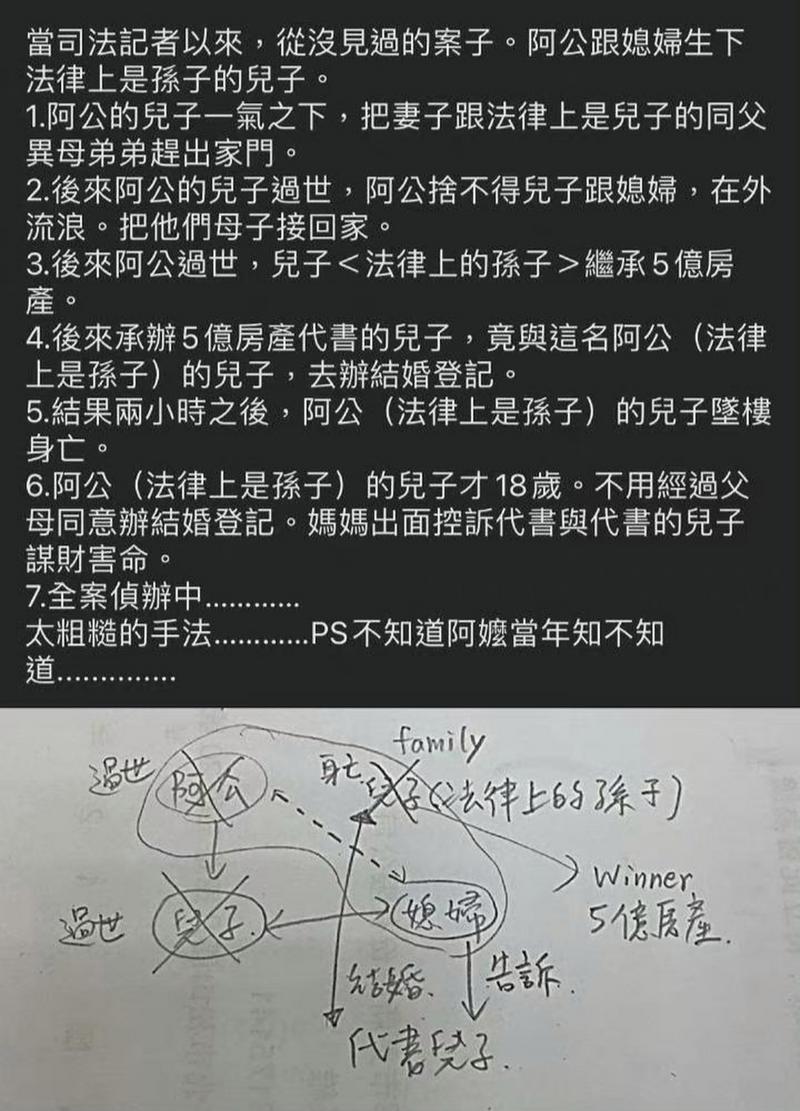 當司法記者以來，從沒見過的案子。阿公跟媳婦生下
法律上是孫子的兒子。
1.阿公的兒子一氣之下，把妻子跟法律上是兒子的同父
異母弟弟趕出家門。
2.後來阿公的兒子過世，阿公捨不得兒子跟媳婦，在外
流浪。把他們母子接回家。
3.後來阿公過世，兒子＜法律上的孫子＞繼承5億房
產。
4.後來承辦5億房產代書的兒子，竟與這名阿公（法律
上是孫子）的兒子，去辦結婚登記。
5.結果兩小時之後，阿公（法律上是孫子）的兒子墜樓
身亡。
6.阿公（法律上是孫子）的兒子才18歲。不用經過父
母同意辦結婚登記。媽媽出面控訴代書與代書的兒子
謀財害命。
7.全案偵辦中............
太粗糙的手法............PS不知道阿嬤當年知不知
道..............
family
過世 阿公 身亡 兒子(法律上的孫子)
winner
過世 兒子 媳婦 5億房產.
結婚. 告訴.
代書兒子.